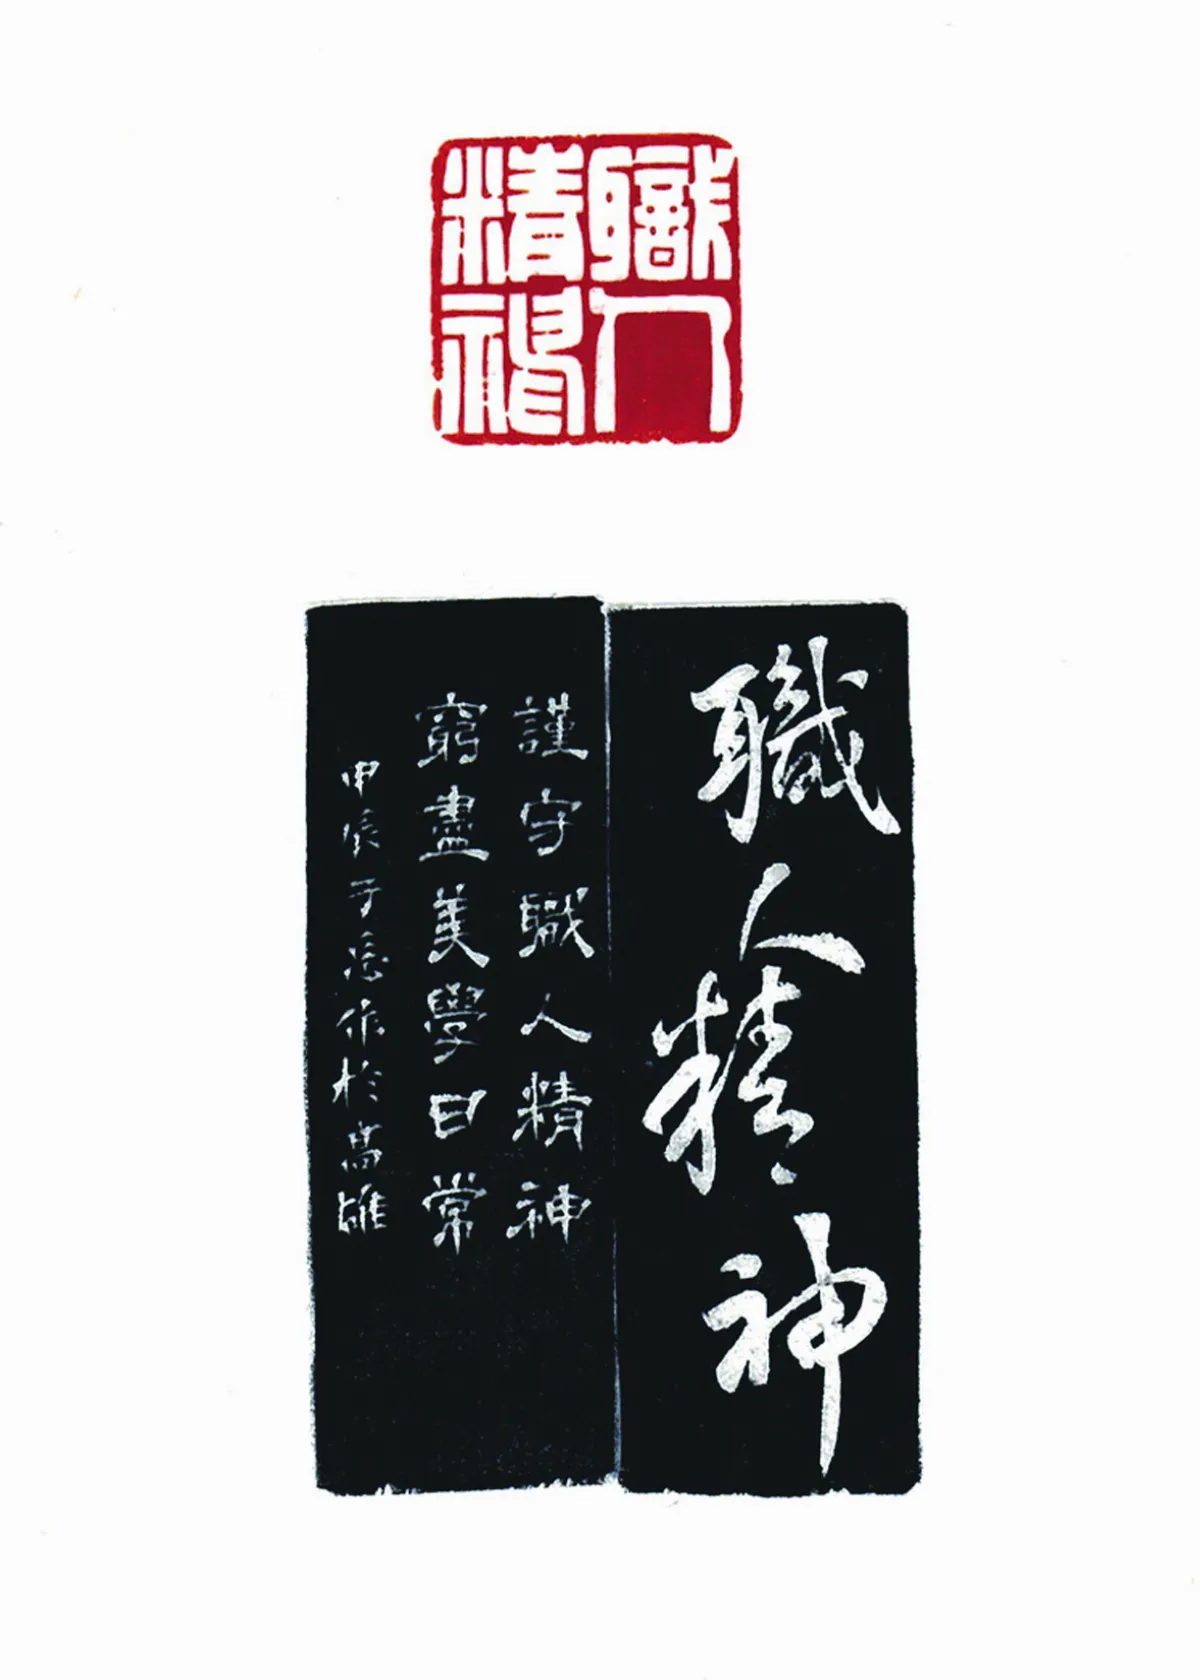 職人
精神
職人精神
謹守職人精神
窮盡美學日常
甲辰子彥作於高雄